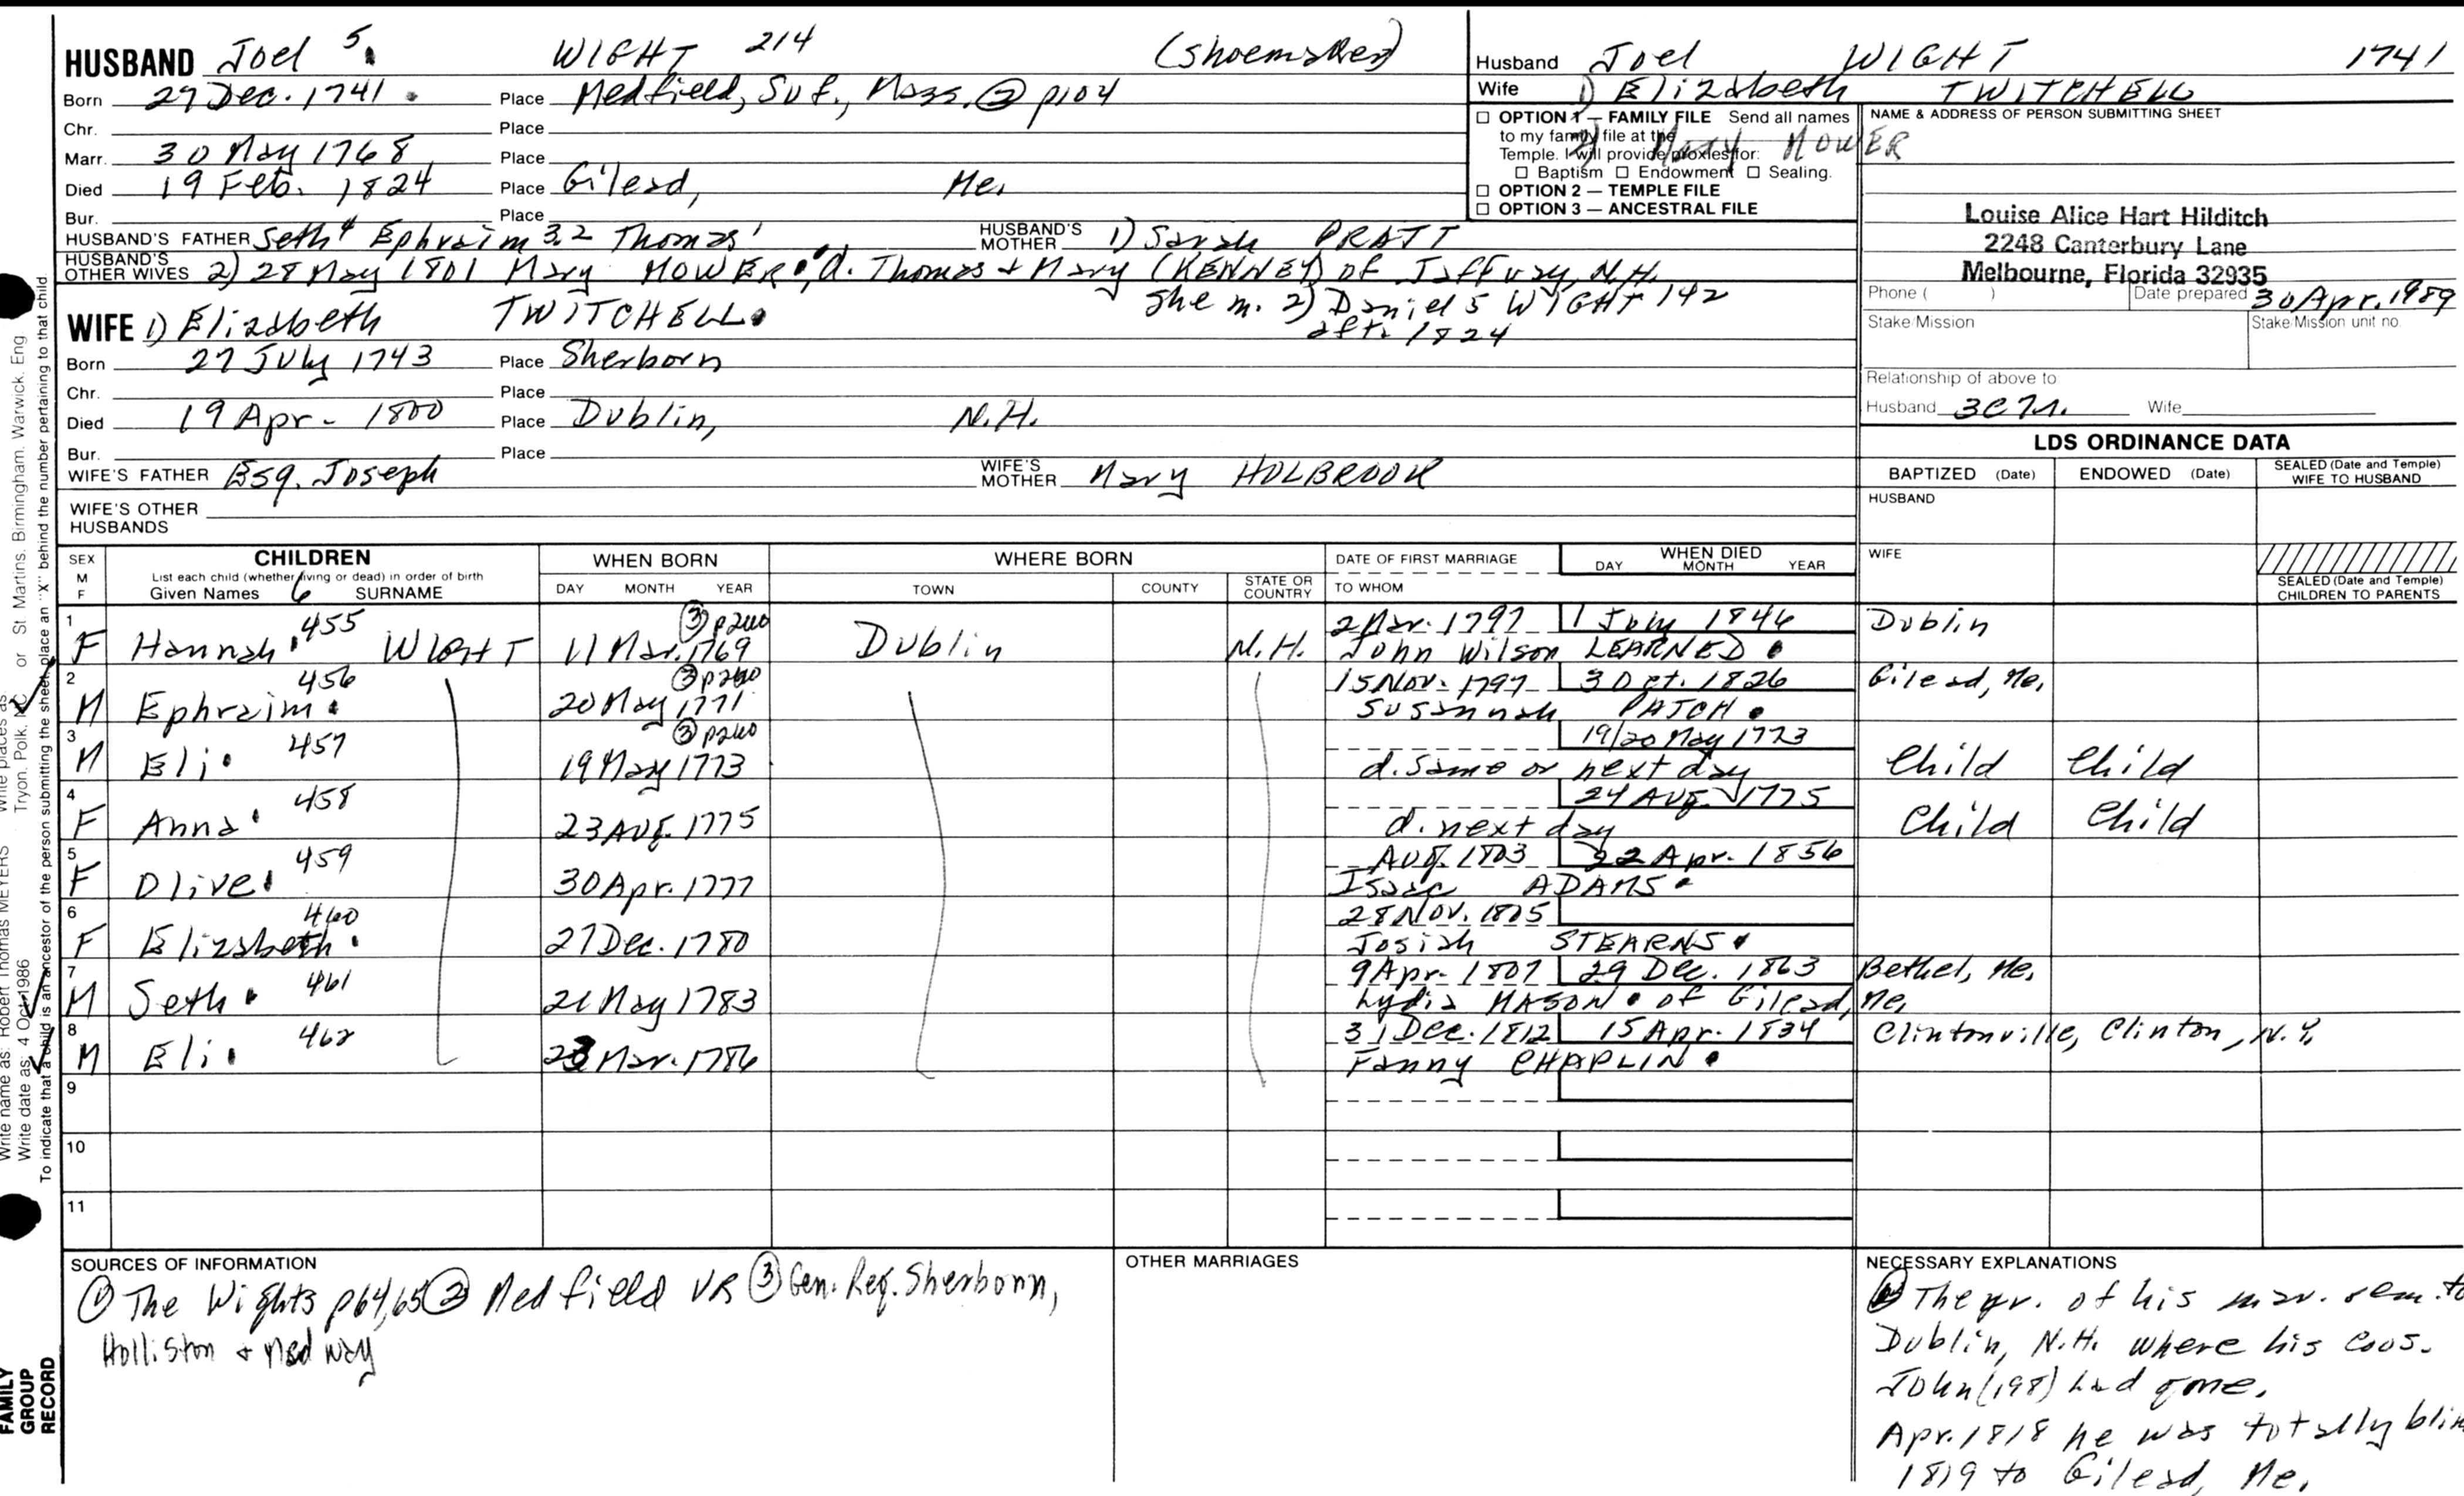 HUSBAND Joel 5. WIGHT 214 (shoemaker)
Born 27 Dec. 1741. Place Medfield, Suf., Mass. ② p104
Chr. Place
Marr. 30 May 1768 Place
Died 19 Feb. 1824 Place Gilead, Me.
Bur. Place
HUSBAND'S FATHER Seth 4 Ephraim 3,2 Thomas 1 HUSBAND'S MOTHER 1) Sarah PRATT
HUSBAND'S OTHER WIVES 2) 28 May 1801 Mary MOWER. d. Thomas + Mary (KENNEY) of Jaffray, N.H.
She m. 2) Daniel 5 WIGHT 142
aft. 1824
WIFE 1) Elizabeth TWITCHELL.
Born 27 July 1743 Place Sherborn
Chr. Place
Died 19 Apr. 1800 Place Dublin, N.H.
Bur. Place
WIFE'S FATHER Esq. Joseph WIFE'S MOTHER Mary HOLBROOK
WIFE'S OTHER HUSBANDS
Husband Joel WIGHT 1741
Wife 1) Elizabeth TWITCHELL
2) Mary MOWER
☐ OPTION 1 — FAMILY FILE Send all names
to my family file at the
Temple. I will provide proxies for:
☐ Baptism ☐ Endowment ☐ Sealing.
☐ OPTION 2 — TEMPLE FILE
☐ OPTION 3 — ANCESTRAL FILE
NAME & ADDRESS OF PERSON SUBMITTING SHEET
Louise Alice Hart Hilditch
2248 Canterbury Lane
Melbourne, Florida 32935
Phone ( ) Date prepared 30 Apr. 1989
Stake/Mission Stake/Mission unit no.
Relationship of above to
Husband 3C7r. Wife
LDS ORDINANCE DATA
BAPTIZED (Date) ENDOWED (Date) SEALED (Date and Temple) WIFE TO HUSBAND
HUSBAND
WIFE
SEALED (Date and Temple)
CHILDREN TO PARENTS
SEX M F CHILDREN WHEN BORN WHERE BORN DATE OF FIRST MARRIAGE WHEN DIED
List each child (whether living or dead) in order of birth
Given Names 6 SURNAME DAY MONTH YEAR TOWN COUNTY STATE OR COUNTRY TO WHOM DAY MONTH YEAR
1 455 ③ p240 2 Mar. 1797 1 July 1846 Dublin
F Hannah. WIGHT 11 Mar. 1769 Dublin N.H. John Wilson LEARNED.
2 456 ③ p240 15 Nov. 1797 3 Oct. 1826 Gilead, Me.
M Ephraim. 20 May 1771 Susannah PATCH.
3 457 ③ p240 19/20 May 1773
M Eli. 19 May 1773 d. same or next day Child Child
4 458 24 Aug. 1775
F Anna. 23 Aug. 1775 d. next day Child Child
5 459 Aug. 1803 22 Apr. 1856
F Olive. 30 Apr. 1777 Isaac ADAMS.
6 460 28 Nov. 1805
F Elizabeth. 27 Dec. 1780 Josiah STEARNS.
7 461 9 Apr. 1807 29 Dec. 1863 Bethel, Me.
M Seth. 21 May 1783 Lydia MASON. of Gilead, Me.
8 462 31 Dec. 1812 15 Apr. 1834 Clintonville, Clinton, N.Y.
M Eli. 23 Mar. 1786 Fanny CHAPLIN.
9
10
11
SOURCES OF INFORMATION
① The Wights p64,65 ② Medfield VR ③ Gen. Reg. Sherborn,
Holliston + Medway
OTHER MARRIAGES
NECESSARY EXPLANATIONS
The yr. of his mar. rem. to
Dublin, N.H. where his cous.
John (198) had gone.
Apr. 1818 he was totally blin
1819 to Gilead, Me.
or St Martins, Birmingham, Warwick, Eng
Write places as Tryon, Polk, NC
Write name as: Robert Thomas MEYERS
Write date as: 4 Oct 1986
To indicate that a child is an ancestor of the person submitting the sheet, place an "X" behind the number pertaining to that child.
FAMILY
GROUP
RECORD